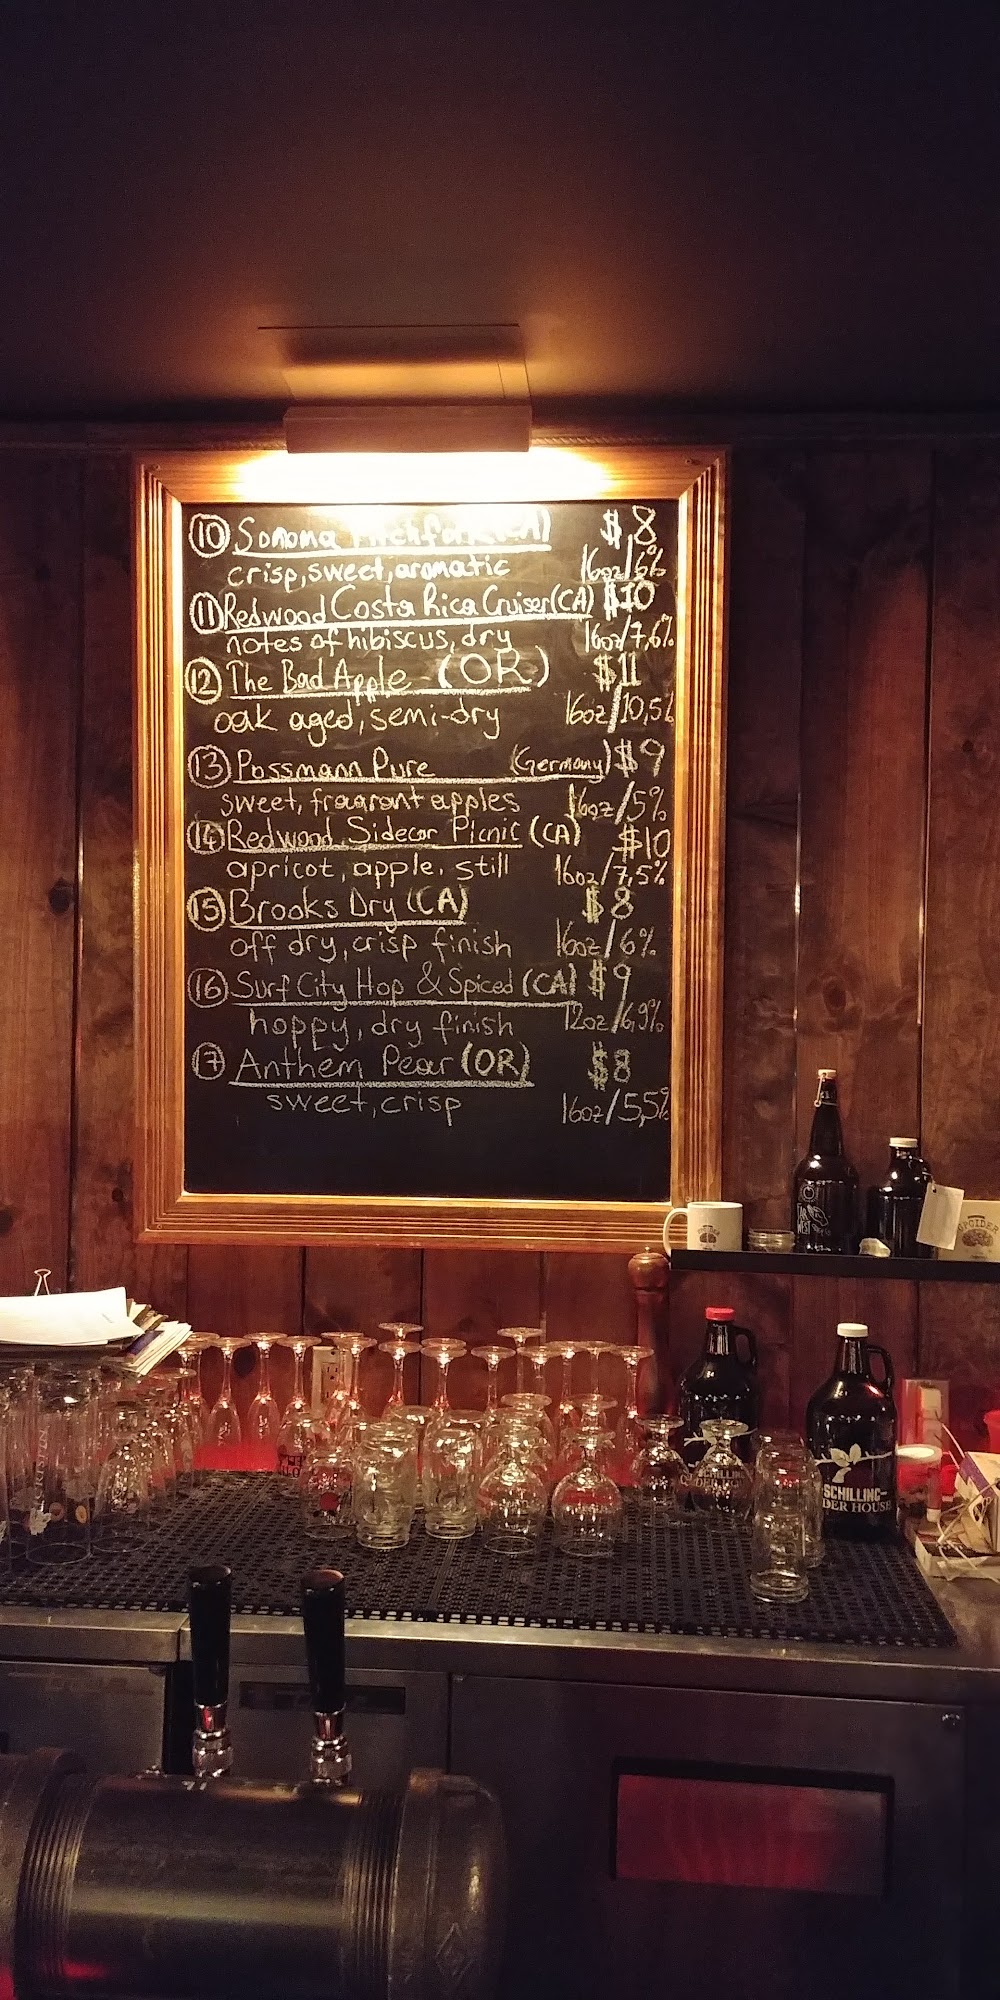 10 Sonoma Pitchfork (CA) $8
crisp, sweet, aromatic 16oz/6%
11 Redwood Costa Rica Cruiser (CA) $10
notes of hibiscus, dry 16oz/7,6%
12 The Bad Apple (OR) $11
oak aged, semi-dry 16oz/10,5%
13 Possmann Pure (Germany) $9
sweet, fragrant apples 16oz/5%
14 Redwood Sidecar Picnic (CA) $10
apricot, apple, still 16oz/7,5%
15 Brooks Dry (CA) $8
off dry, crisp finish 16oz/6%
16 Surf City Hop & Spiced (CA) $9
hoppy, dry finish 12oz/6,9%
17 Anthem Pear (OR) $8
sweet, crisp 16oz/5,5%
WEST
UPCIDER
SCHILLING
DER HOUSE